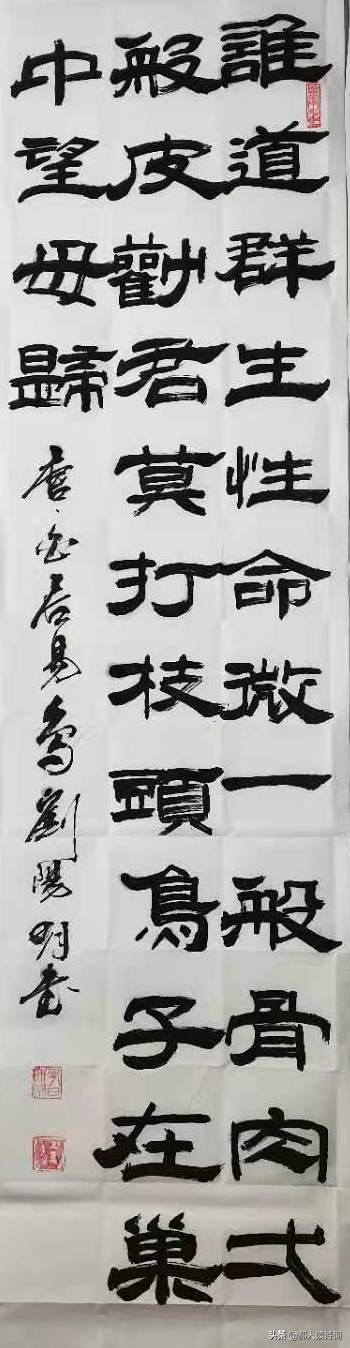 誰道群生性命微一般骨肉弌
般皮勸君莫打枝頭鳥子在巢
中望母歸
唐白居易鳥劉陽明書
头条@鄙人谈诗词